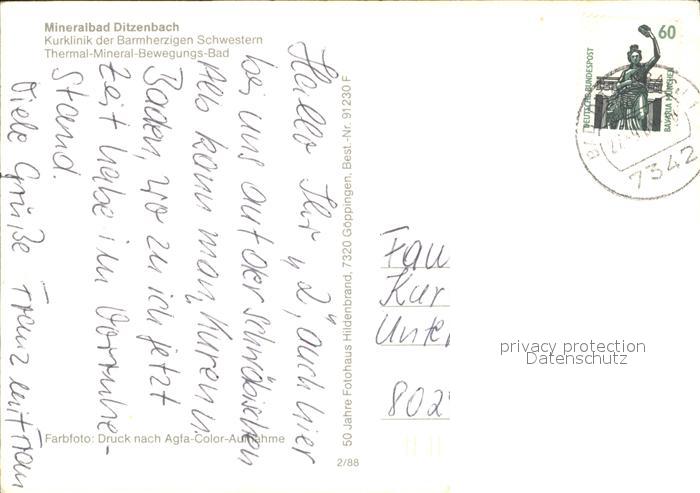 Mineralbad Ditzenbach
Kurklinik der Barmherzigen Schwestern
Thermal-Mineral-Bewegungs-Bad
Hallo Ihr "2", auch hier
bei uns auf der schwäbischen
Alb kann man, Kuren u.
Baden, wo zu ich jetzt
Zeit habe im Vorruhe-
stand.
Viele Grüße Franz mit Frau
Farbfoto: Druck nach Agfa-Color-Aufnahme
2/88
50 Jahre Fotohaus Hildenbrand, 7320 Göppingen, Best.-Nr. 91230 F
60
DEUTSCHE BUNDESPOST
BAVARIA MÜNCHEN
7342
Fau
Kur
Unter
802
privacy protection
Datenschutz